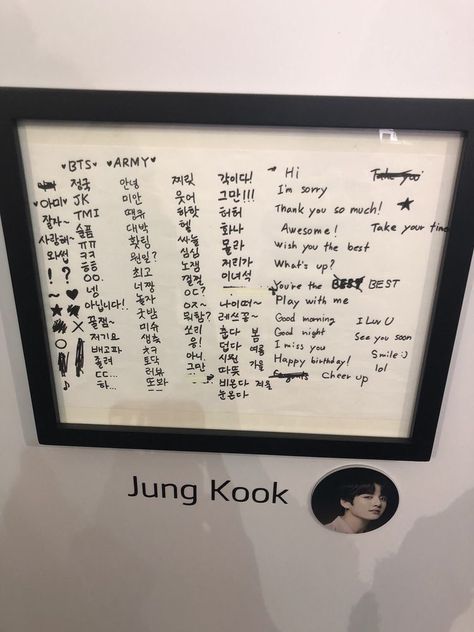 ♥BTS♥ ♥ARMY♥
정국
♥아미♥ JK
잘자~ TMI
사랑해 슬픔
와썹 ㅠㅠ
ㅋㅋ
! ? 흠
OO
~ ♥ 넵
★ 아닙니다!!
X 꿀잼~
저기요
배고파
졸려
ㄷㄷ...
♪ 하...
안녕
미안
땡큐
대박
홧팅
뭔일?
최고
너짱
놀자
굿밤
미슈
생축
ㅊㅋ
토닥
러뷰
또봐
찌릿
웃어
하핫
헐
싸늘
심심
노잼
낄낄
OC?
OZ~
뭐함?
쏘리
응!
아니.
그만
각이다!
그만!!!
허허
화나
몰라
저리가
이녀석
나이떠~
레쓰꼬~
춥다 봄
덥다 여름
시원 가을
따뜻
비온다 겨울
눈온다
Hi
I'm sorry
Thank you so much! ★
Awesome! Take your time
Wish you the best
What's up?
You're the BEST
Play with me
Good morning I Luv U
Good night See you soon
I miss you Smile :)
Happy birthday! lol
Cheer up
Jung Kook